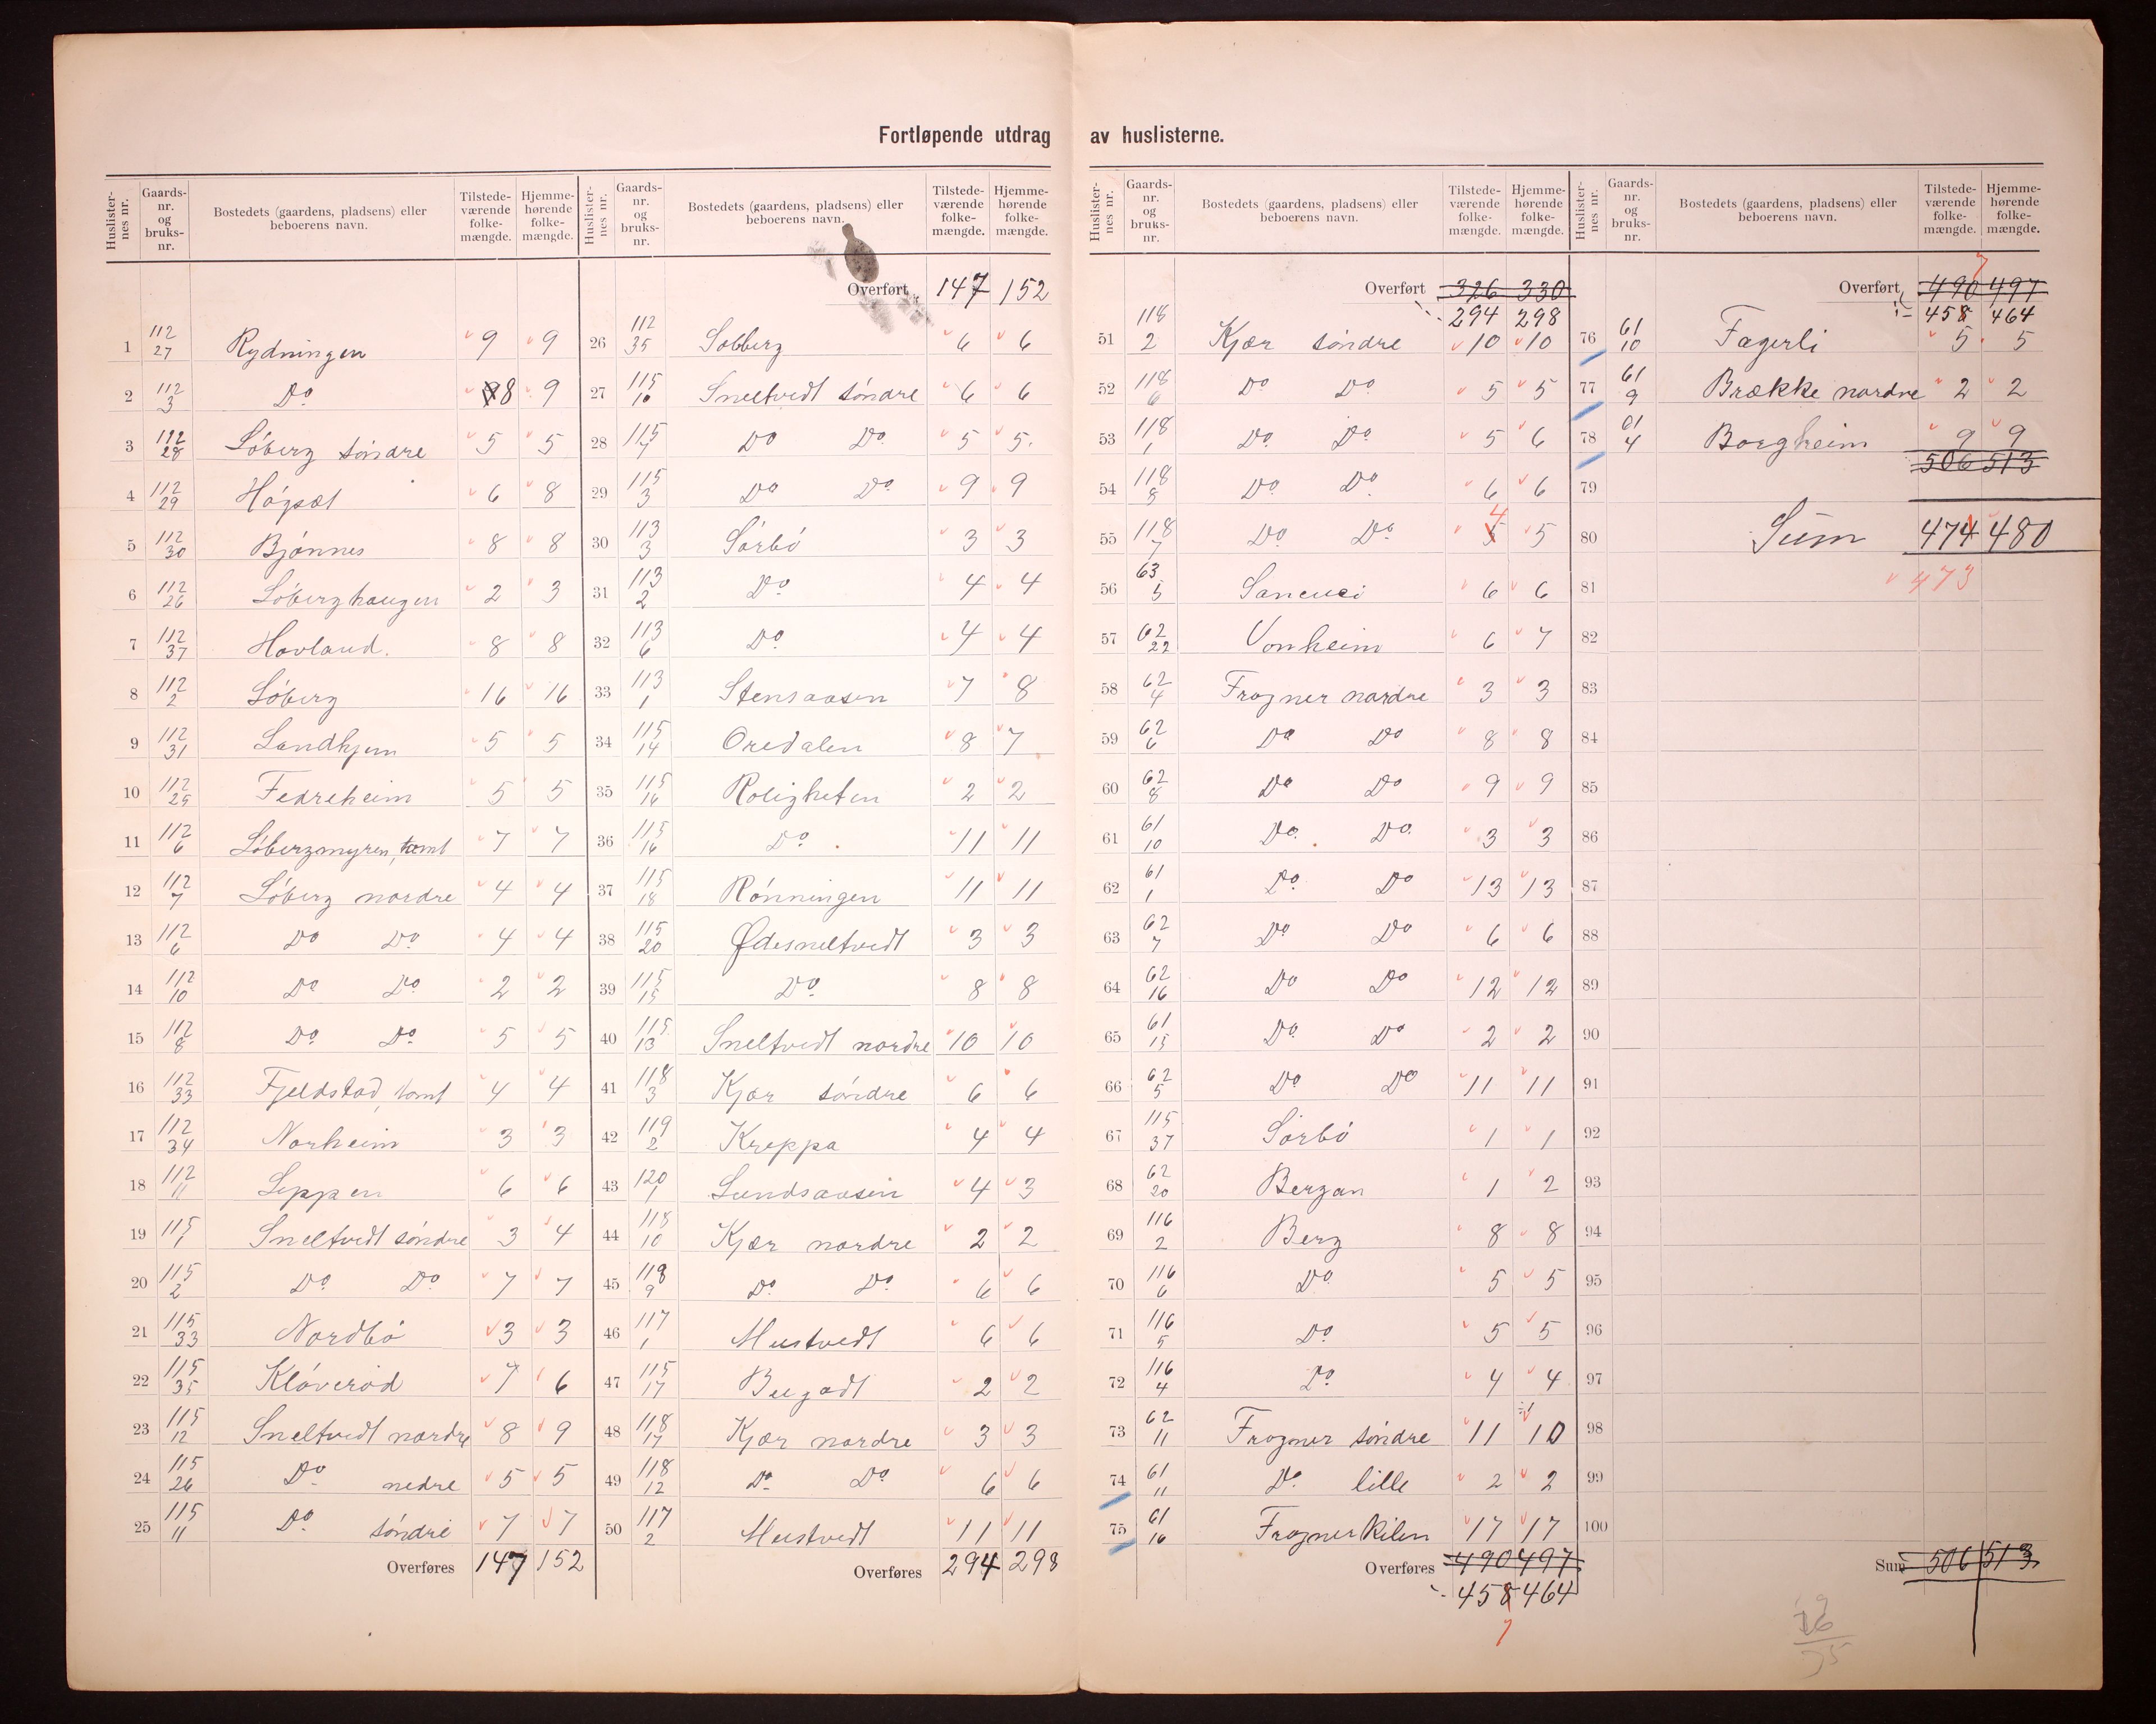 Fortløpende utdrag av huslisterne.
Huslisternes nr. Gaardsnr. og bruksnr. Bostedets (gaardens, pladsens) eller beboerens navn. Tilstedeværende folkemængde. Hjemmehørende folkemængde.
1 112/27 Rydningen 9 9
2 112/3 Do 8 9
3 112/28 Løberg søndre 5 5
4 112/29 Høgset 6 8
5 112/30 Bjønnes 8 8
6 112/26 Løberghaugen 2 3
7 112/37 Hovland. 8 8
8 112/2 Løberg 16 16
9 112/31 Landhjem 5 5
10 112/25 Fedreheim 5 5
11 112/6 Løbergmyren, tomt 7 7
12 112/7 Løberg nordre 4 4
13 112/6 Do Do 4 4
14 112/10 Do Do 2 2
15 112/8 Do Do 5 5
16 112/33 Fjeldstad, tomt 4 4
17 112/34 Norheim 3 3
18 112/11 Leppen 6 6
19 115/1 Sneltvedt søndre 3 4
20 115/2 Do Do 7 7
21 115/33 Nordbø 3 3
22 115/35 Kløverød 7 6
23 115/12 Sneltvedt nordre 8 9
24 115/26 Do nedre 5 5
25 115/11 Do søndre 7 7
Overføres 147 152
Huslisternes nr. Gaardsnr. og bruksnr. Bostedets (gaardens, pladsens) eller beboerens navn. Tilstedeværende folkemængde. Hjemmehørende folkemængde.
Overført 147 152
26 112/35 Solberg 6 6
27 115/10 Sneltvedt søndre 6 6
28 115/7 Do Do 5 5.
29 115/3 Do Do 9 9
30 113/3 Sørbø 3 3
31 113/2 Do 4 4
32 113/6 Do 4 4
33 113/1 Stensaasen 7 8
34 115/14 Oredalen 8 7
35 115/16 Roligheten 2 2
36 115/16 Do 11 11
37 115/18 Rønningen 11 11
38 115/20 Ødesneltvedt 3 3
39 115/15 Do 8 8
40 115/13 Sneltvedt nordre 10 10
41 118/3 Kjær søndre 6 6
42 119/2 Kreppa 4 4
43 120/1 Lundsaasen 4 3
44 118/10 Kjær nordre 2 2
45 118/9 Do Do 6 6
46 117/1 Mustvedt 6 6
47 115/17 2 2
48 118/17 Kjær nordre 3 3
49 118/12 Do Do 6 6
50 117/2 Mustvedt 11 11
Overføres 294 298
Huslisternes nr. Gaardsnr. og bruksnr. Bostedets (gaardens, pladsens) eller beboerens navn. Tilstedeværende folkemængde. Hjemmehørende folkemængde.
Overført 326 330
294 298
51 118/2 Kjær søndre 10 10
52 118/6 Do Do 5 5
53 118/1 Do Do 5 6
54 118/8 Do Do 6 6
55 118/7 Do Do 5 4 5
56 63/5 Sancuci 6 6
57 62/22 Vonheim 6 7
58 62/4 Frogner nordre 3 3
59 62/6 Do Do 8 8
60 62/8 Do Do 9 9
61 61/10 Do Do 3 3
62 61/1 Do Do 13 13
63 62/7 Do Do 6 6
64 62/16 Do Do 12 12
65 61/15 Do Do 2 2
66 62/5 Do Do 11 11
67 115/37 Sørbø 1 1
68 62/20 Bergan 1 2
69 116/2 Berg 8 8
70 116/6 Do 5 5
71 116/5 Do 5 5
72 116/4 Do 4 4
73 62/11 Frogner søndre 11 10
74 61/11 Do lille 2 2
75 61/16 Frognerkilen 17 17
Overføres 490 497
458 464
7
Huslisternes nr. Gaardsnr. og bruksnr. Bostedets (gaardens, pladsens) eller beboerens navn. Tilstedeværende folkemængde. Hjemmehørende folkemængde.
7
Overført 490 497
458 464
76 61/10 Fagerli 5 5
77 61/9 Brække nordre 2 2
78 61/4 Borgheim 9 9
506 513
79
80 Sum 474 480
81 473
82
83
84
85
86
87
88
89
90
91
92
93
94
95
96
97
98
99
100
Sum 506 513